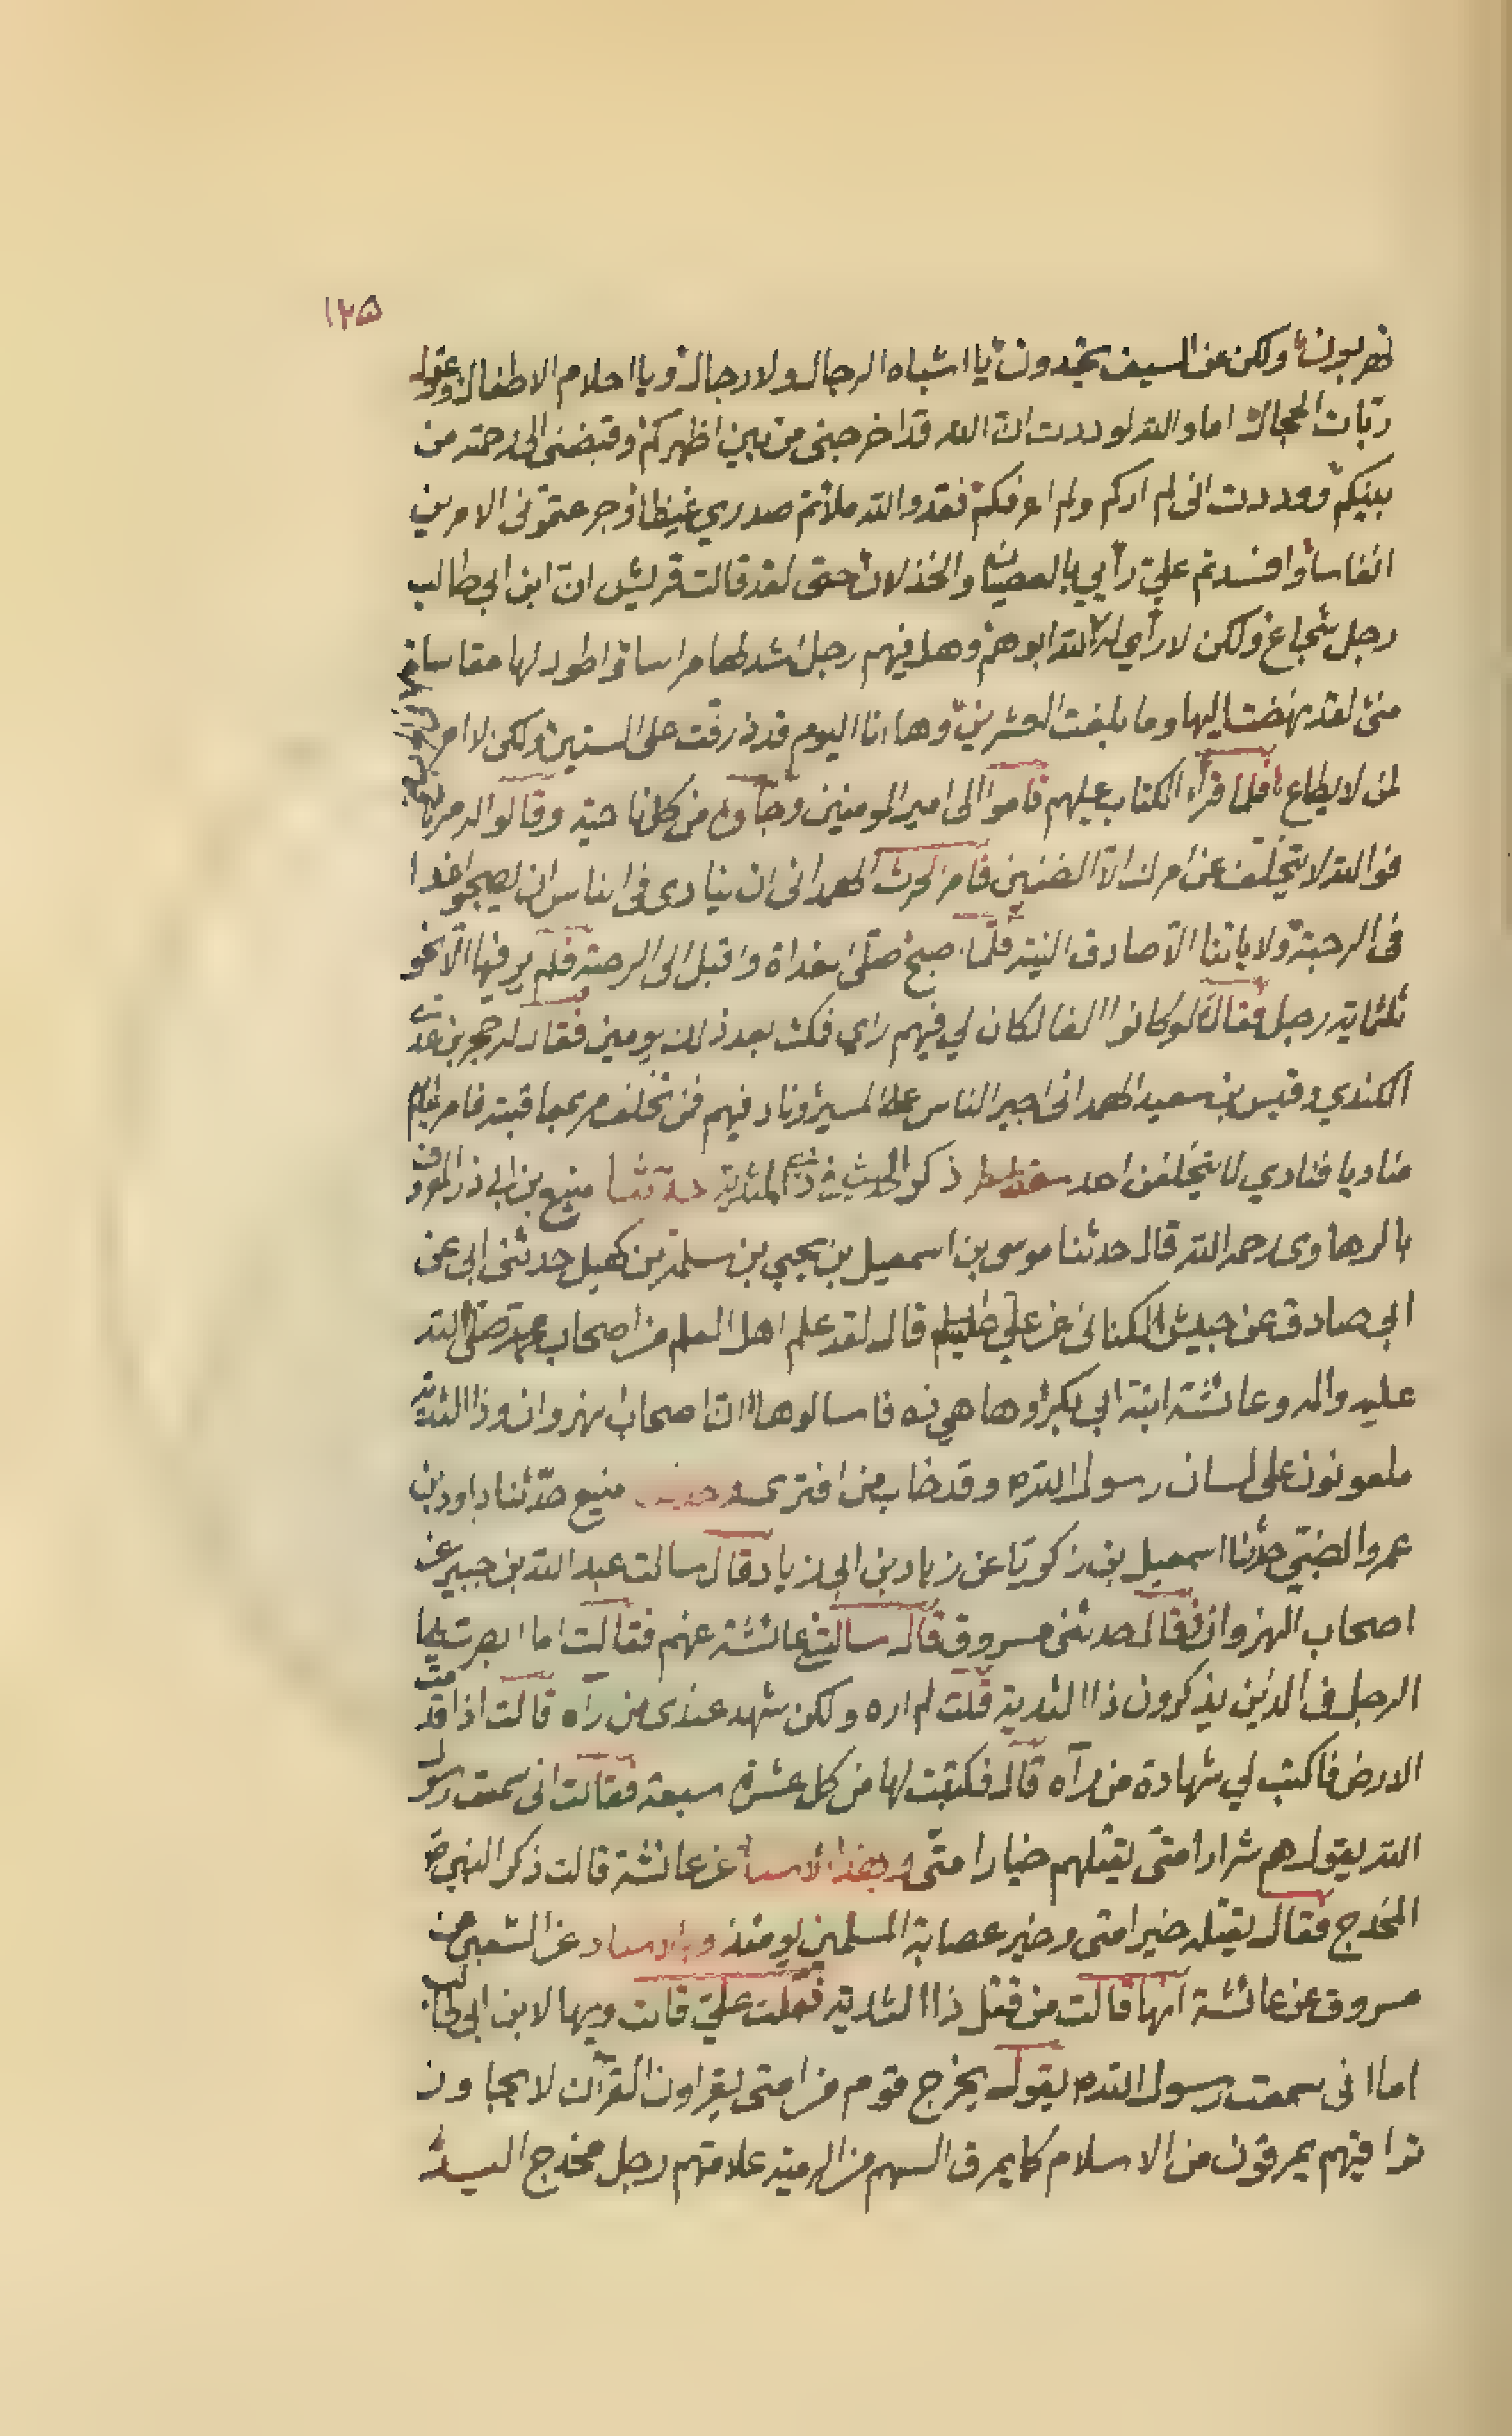 ١٢٥
تهربون ولكن من السيف تحيدون يا اشباه الرجال ولا رجال ويا احلام الاطفال وعقول
ربّات الحجال اما والله لوددت انّ الله قد اخرجنى من بين اظهركم وقبضنى الى رحمته من
بينكم ووددت انى لم اركم ولم اعرفكم فقد والله ملأتم صدري غيظا وجرعتموني الامرين
انفاسا وافسدتم علىّ رأيي بالعصيان والخذلان حتى لقد قالت قريش انّ ابن ابي طالب
رجل شجاع ولكن لا رأي له لله ابوهم وهل فيهم رجل اشد لها مراسا واطول لها مقاساة
منى لقد نهضت اليها وما بلغت العشرين وها انا اليوم قد ذرفت على الستين ولكن لا امر
لمن لا يطاع فلما قرأ الكتاب عليهم قاموا الى امير المومنين وجاؤه من كل ناحية وقالوا له مرنا
فوالله لا يتخلف عن امرك الّا الضنين فامر الحرث الهمدانى ان ينادى في الناس ان يصبحوا غدا
فى الرحبة ولا ياتنا الّا صادق النية فلمّا اصبح صلّى الغداة واقبل الى الرحبة فلم ير فيها الّا نحو
ثلثماية رجل فقال لو كانوا الفا لكان لي فيهم راى فمكث بعد ذلك يومين فقال له حجر بن عدى
الكندي وقيس بن سعيد الهمدانى اجبر الناس على المسير وناد فيهم فمن تخلف مر بمعاقبته فامر
مناديا فنادي لا يتخلفن احد ذكر الحديث في ذي الثدية حدثنا منيع بن ابى ذر المعروف
بالرهاوى رحمه الله قال حدثنا موسى بن اسمعيل بن يحيي بن سلمة بن كهيل حدثنى ابى عن
ابى صادق عن حبيش الكنانى عن علي قال لقد علم اهل العلم من اصحاب محمد صلى الله
عليه واله وعائشة ابنة ابي بكر وها هي ذه فاسالوها انّ اصحاب نهروان وذا الثدية
ملعونون على لسان رسول الله ص وقد خاب من افترى منيع حدّثنا داود بن
عمرو الضبّي حدثنا اسمعيل بن زكريّا عن زياد بن ابى زياد قال سالت عبد الله بن جبير عن
اصحاب النهروان فقال حدثنى مسروق قال سالتنى عائشة عنهم فقالت اما ابصرت
الرجل الذين يذكرون ذا الثدية قلت لم اره ولكن شهد عندى من رآه قالت اذا قدمت
الارض فاكتب لي شهادة من رآه قال فكتبت لها من كل عشرة سبعة فقالت انى سمعت رسول
الله يقول هم شرار امتى يقتلهم خيار امتّى وبهذا الاسناد عن عائشة قالت ذكر النبي ص
المخدج فقال يقتله خير امتى وخير عصابة المسلمين يومئذ وبالاسناد عن الشعبى عن
مسروق عن عائشة انها قالت من قتل ذا الثدية فقلت علىّ قالت ويها لابن ابى طالب
اما انى سمعت رسول الله ص يقول يخرج قوم من امتى يقراون القرآن لا يجاوز
تراقيهم يمرقون من الاسلام كما يمرق السهم من الرمية علامتهم رجل مخدج اليد